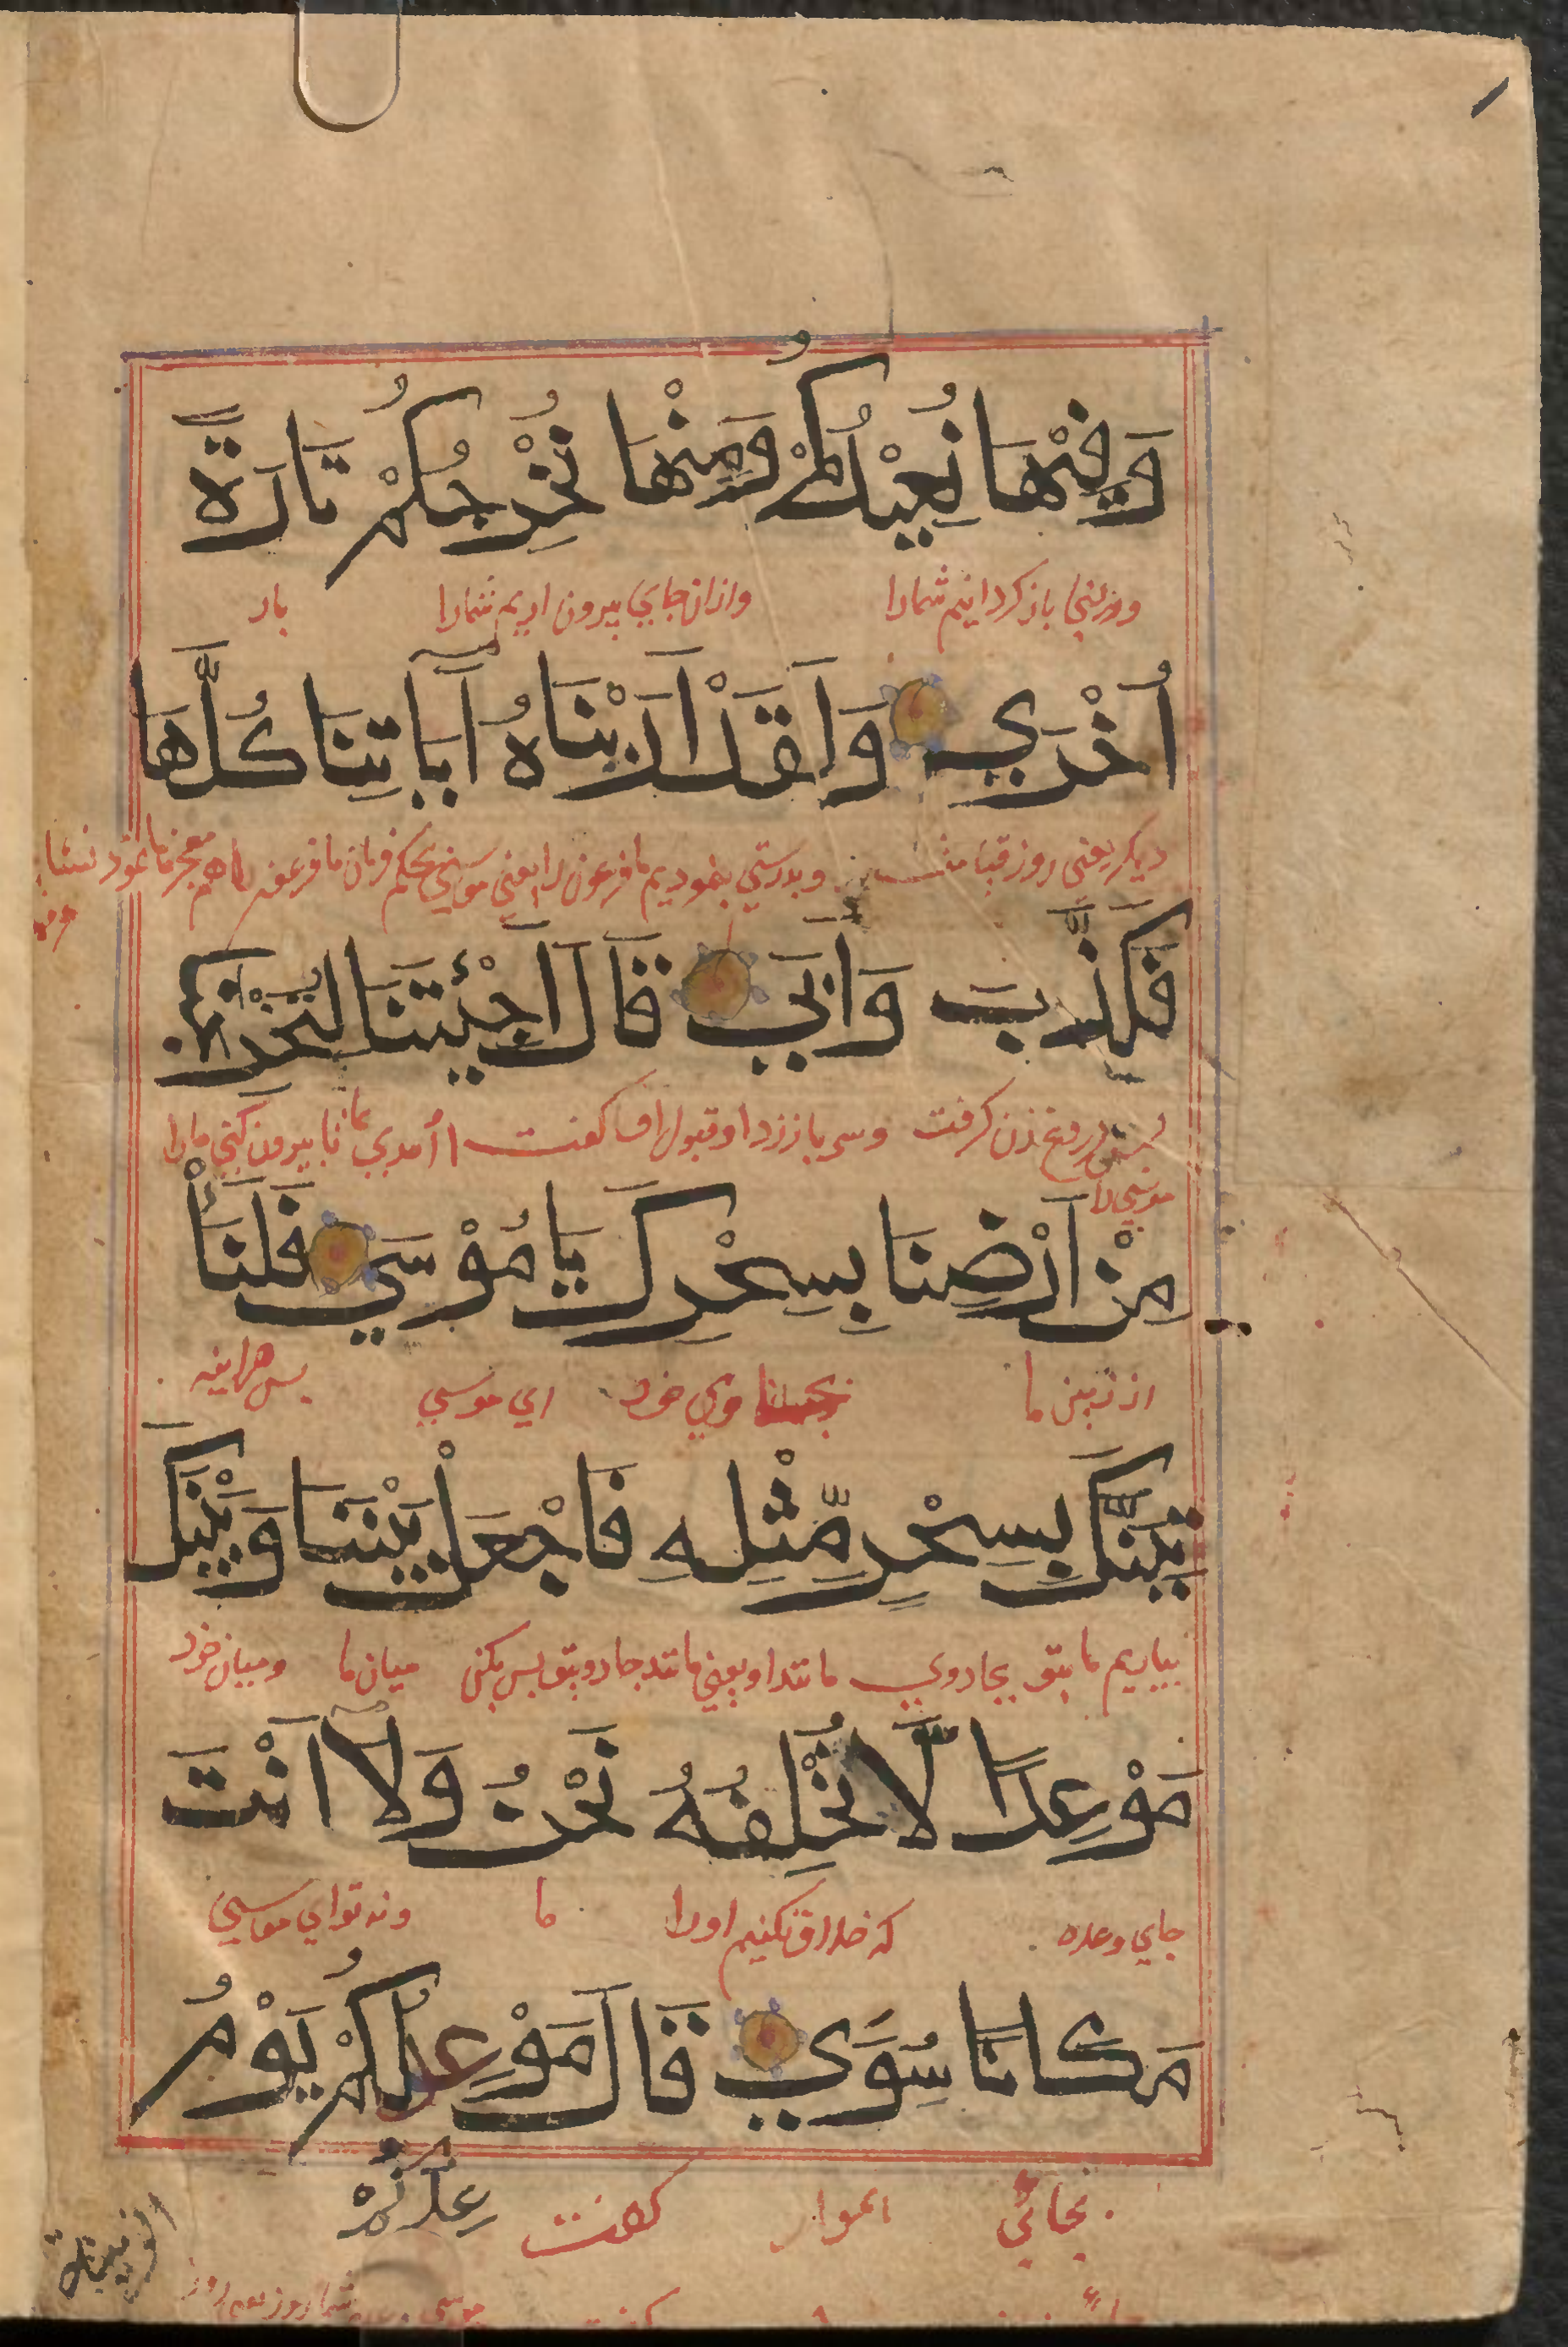 وَفِيْهَا نُعِيْدُكُمْ وَمِنْهَا نُخْرِجُكُمْ تَارَةً
ودرينجا باز كردانيم شمارا وازان جاي بيرون اريم شمارا بار
اُخْرَي وَلَقَدْ اَرَيْنَاهُ آيَاتِنَا كُلَّهَا
ديكر يعني روز قيامت وبدرستي بنموديم ما فرعون را يعني موسي بحكم فرمان ما فرعون را
فَكَذَّبَ وَاَبَي قَالَ اَجِئْتَنَا لِتُخْرِجَنَا
دروغ زن كرفت وسر باز زد او قبول كفت اآمدي بما تا بيرون كني مارا
موسي را
مِنْ اَرْضِنَا بِسِحْرِكَ يَا مُوْسَي فَلَنَأْ
از زمين ما خود اي موسي پس هراينه
تِيَنَّكَ بِسِحْرٍ مِّثْلِهِ فَاجْعَلْ بَيْنَنَا وَبَيْنَكَ
بياريم ما بتو بجادوي مانند او يعني مانند جادو بتو پس بكن ميان ما وميان خود
مَوْعِدًا لَّا نُخْلِفُهُ نَحْنُ وَلَا اَنْتَ
جاي وعده كه خلاف نكنيم اورا ما ونه تو اي موسي
مَكَانًا سُوَي قَالَ مَوْعِدُكُمْ يَوْمُ
عِدُكُمْ
بجائي هموار كفت
الزينة